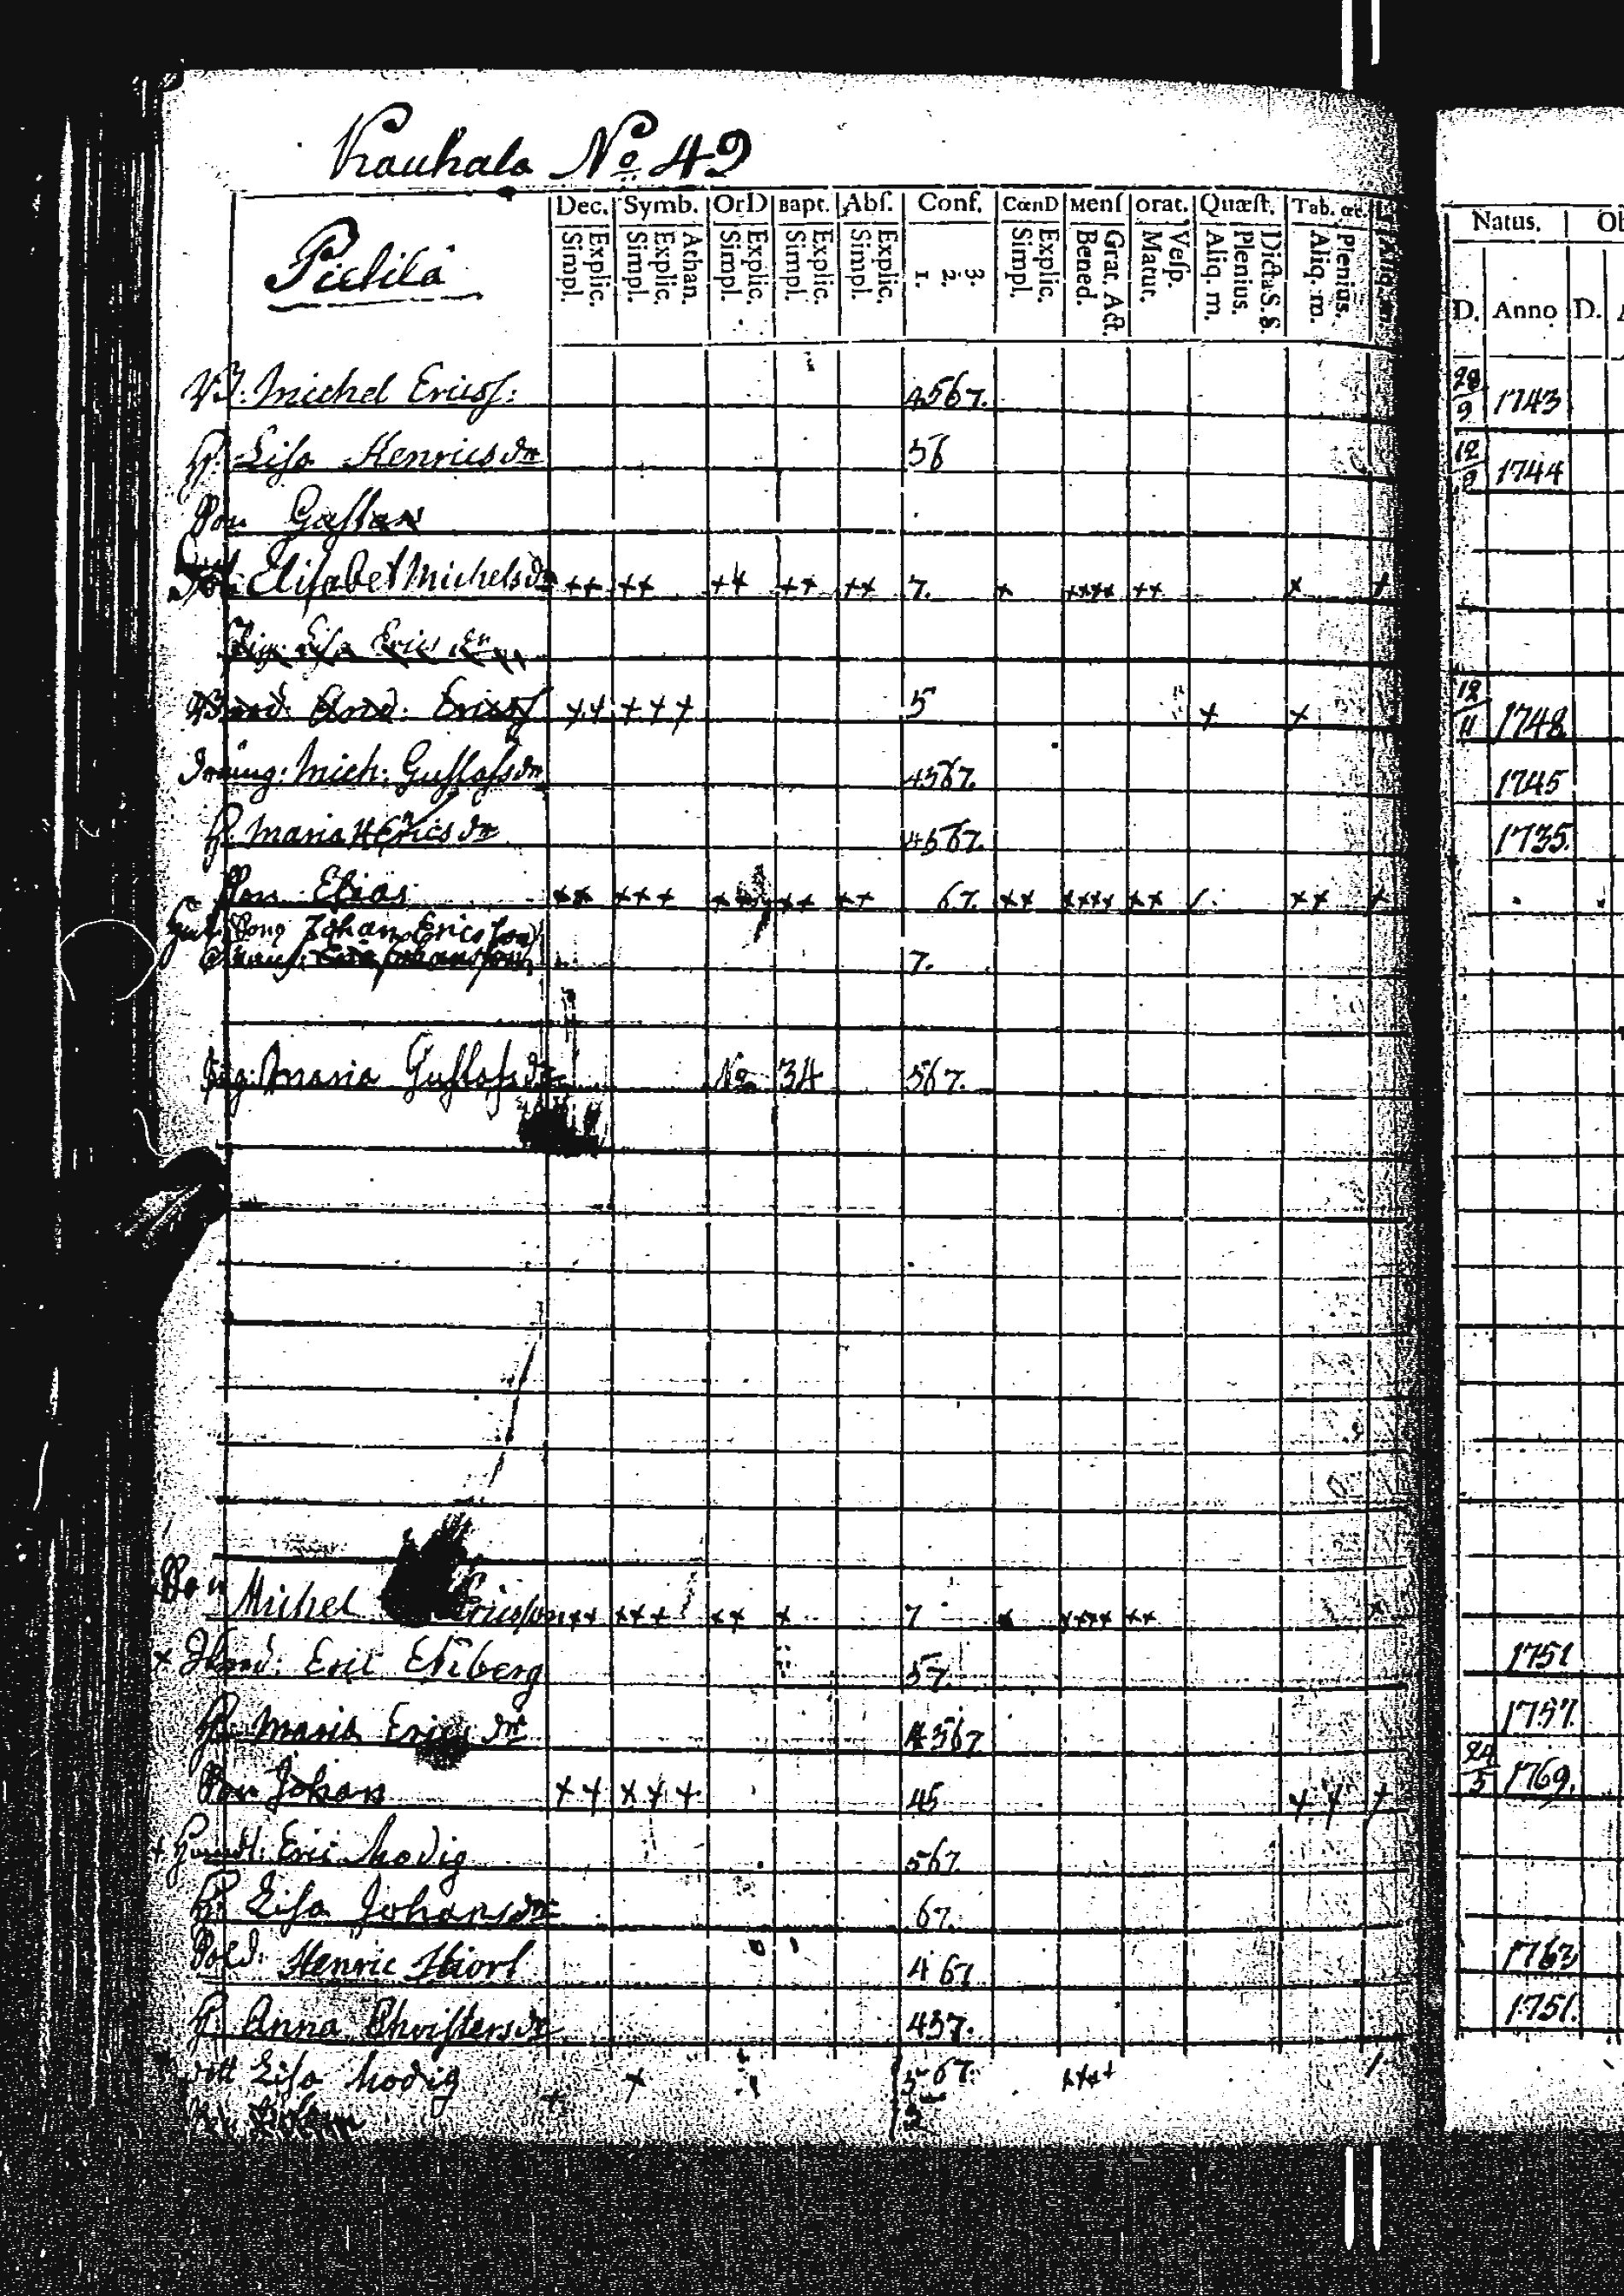 Kauhala No 49
Dec. Symb. OrD Bapt. Abſ. Conf. CœnD Menſ orat. Quæſt. Tab. œc. Natus.
Explic. Simpl. Athan. Explic. Simpl. Explic. Simpl. Explic. Simpl. Explic. Simpl. 3. 2. 1. Explic. Simpl. Grat. Act. Bened. Veſp. Matut. Dicta S. S. Plenius. Aliq. m. Plenius. Aliq. m. D. Anno D.
Pichila
Michel Ericss: 4567. 28/9 1743
H. Lisa Henricsdr 56 12/8 1744
Son Gustav
Elisabet Michelsdr ++ ++ ++ ++ ++ 7. + ++++ ++ + +
Lisa Erics
Ericss ++ +++ 5 + + 12/11 1748
Dräng: Mich: Gustafsdr 4567. 1745
H. Maria Ericsdr 4567. 1735.
Son Elias ++ +++ ++ ++ ++ 67. ++ ++++ ++ ++ +
Son Johan Ericsson
7.
Pig: Maria Gustafsdr No 34 567.
Son
Michel Ericsson ++ +++ ++ + 7 + ++++ ++ +
+ Eric Enberg 57. 1751
H. Maria Ericsdr 4567 1757.
Son Johan ++ +++ 45 ++ + 24/5 1769.
+ Eric Modig 567
H. Lisa Johansdr 67.
Sold: Henric Hiort 467 1763
H. Anna Christersdr 457. 1751.
dott Lisa Modig + + 567. ++++